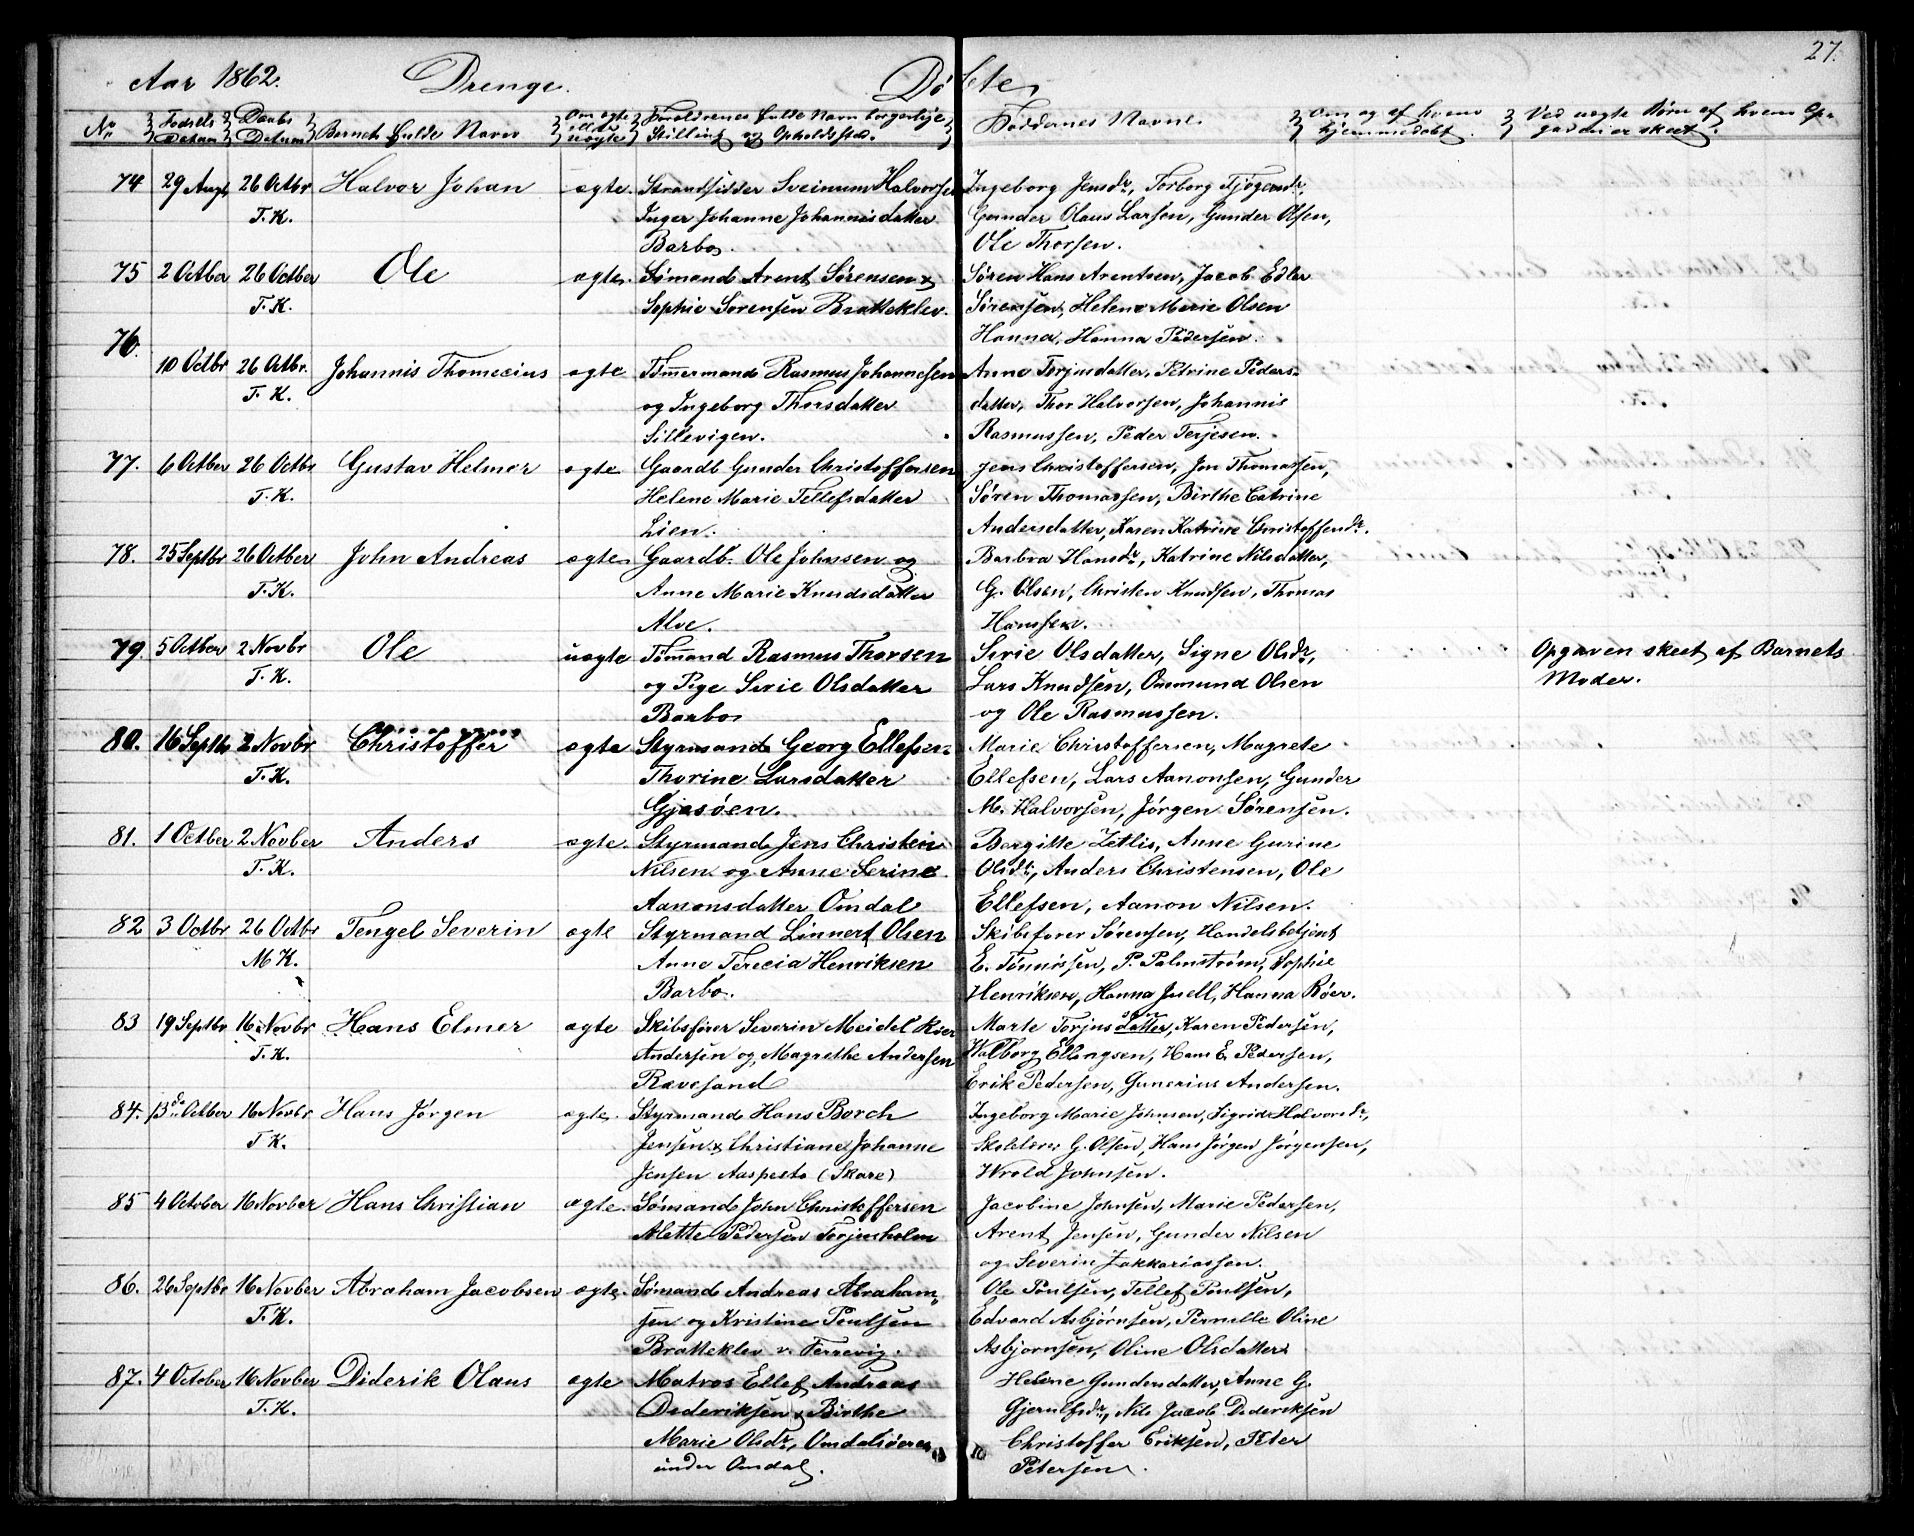 27.
Aar 1862. Drenge. Døbte,
No Fødsels Datum Daabs Datum Barnets fulde Navn Om ægte eller uægte Forældrenes fulde Navn borgerlige Stilling og Opholdsted. Faddernes Navne. Om og af hvem hjemmedøbt. Ved uægte Børn af hvem Opgaven er skeet.
74 29 Augt 26 Octbr Halvor Johan ægte. Strandsidder Sveinum Halvorsen Ingeborg Jensdr, Torborg
T. K. Inger Johanne Johannisdatter Gunder Olaus Larsen, Gunder Olsen,
Barbo. Ole Thorsen.
75 2 Octber 26 Octber Ole ægte. Sømand Arent Sørensen & Søren Hans Arentsen, Jacob Edler
T. K. Sophie Sørensen Bratteklev. Sørensen, Helene Marie Olsen
76. Hanna, Hanna Pedersen.
10 Octbr 26 Octbr. Johannis Thomecius ægte Tømermand Rasmus Johannesen Anne Torjusdatter, Petrine Peders-
T. K. og Ingeborg Thorsdatter datter, Thor Halvorsen, Johannis
Sillevigen. Rasmussen, Peder Terjesen.
77. 6 Octber 26 Octbr Gustav Helmer ægte Gaardb Gunder Christoffersen Jens Christoffersen, Jon Thomassen,
T. K. Helene Marie Tellefsdatter Søren Thomassen, Birthe Catrine
Lien. Andersdatter, Karen Katrine Christoffersdr.
78. 25 Septbr 26 Octber John Andreas ægte Gaardb. Ole Johnsen og Barbra Hansdr, Katrine Nilsdatter,
T. K. Anne Marie Knudsdatter G. Olsen, Christen Knudsen, Thomas
Alve. Hanssen.
79. 5 Octber 2 Novbr Ole uægte Tømand Rasmus Thorsen Serie Olsdatter, Signe Olsdr, Opgaven skeet af Barnets
T. K. og Pige Serie Olsdatter Lars Knudsen, Omund Olsen Moder.
Barbo og Ole Rasmussen.
80. 16 Septbr 2 Novbr Christoffer ægte Styrmand Georg Ellefsen- Marie Christoffersen, Magrete
T. K. Thorine Larsdatter Ellefsen, Lars Aanonsen, Gunder
Gjesøen. M. Halvorsen, Jørgen Sørensen.
81. 1 Octber 2 Novber Anders ægte. Styrmand Jens Christen Bergitte Zetlis, Anne Gurine
T. K. Nilsen og Anne Serine Olsdr, Anders Christensen, Ole
Aanonsdatter Omdal Ellefsen, Aanon Nilsen.
82 3 Octbr 26 Octbr Tengel Severin ægte Styrmand Linnert Olsen Skibsfører Sørensen, Handelsbetjent
M K. Anne Terecia Henriksen E. Tennissen, P. Palmstrøm, Sophie
Barbo. Henriksen, Hanna Juell, Hanna Röer.
83 19 Septbr 16 Novbr Hans Elmer ægte Skibsfører Severin Meidel Röer Marte Torjusdatter sen, Karen Pedersen,
T. K. Andersen og Magrethe Andersen Walborg Ellingsen, Hans E. Pedersen,
Rævesand Erik Pedersen, Gunerius Andersen.
84. 13 de Octber 16 Novbr Hans Jørgen ægte. Styrmand Hans Borch Ingeborg Marie Johnsen, Sigrid Halvorsdr,
T K. Jensen & Christiane Johanne G. Olsen, Hans Jørgen Jörgensen,
Jensen Aaspesto (Skare) Wrold Johnsen.
85 4 October 16 Novber Hans Christian ægte. Sømand John Christoffersen Jacobine Johnsen, Marie Pedersen,
Alette Pedersen Torjusholm Arent Jensen, Gunder Nilsen
og Severin Zakkariassen.
86. 26 Septbr 16 Novber Abraham Jacobsen ægte. Sømand Andreas Abraham- Ole Poulsen, Tellef Poulsen,
T. K. sen og Kristine Poulsen Edvard Asbjørnsen, Pernelle Oline
Bratteklev v. Færevig. Asbjørnsen, Oline Olsdatter
87. 4 October 16 Novber Diderik Olaus ægte Matros Ellef Andreas Helene Gundersdatter, Anne G.
T. K. Dederiksen & Birthe Gjerulfsdr, Nils Jacob Dederiksen
Marie Olsdr, Omdalsøeren Christoffer Eriksen, Peter
under Omdal. Petersen.